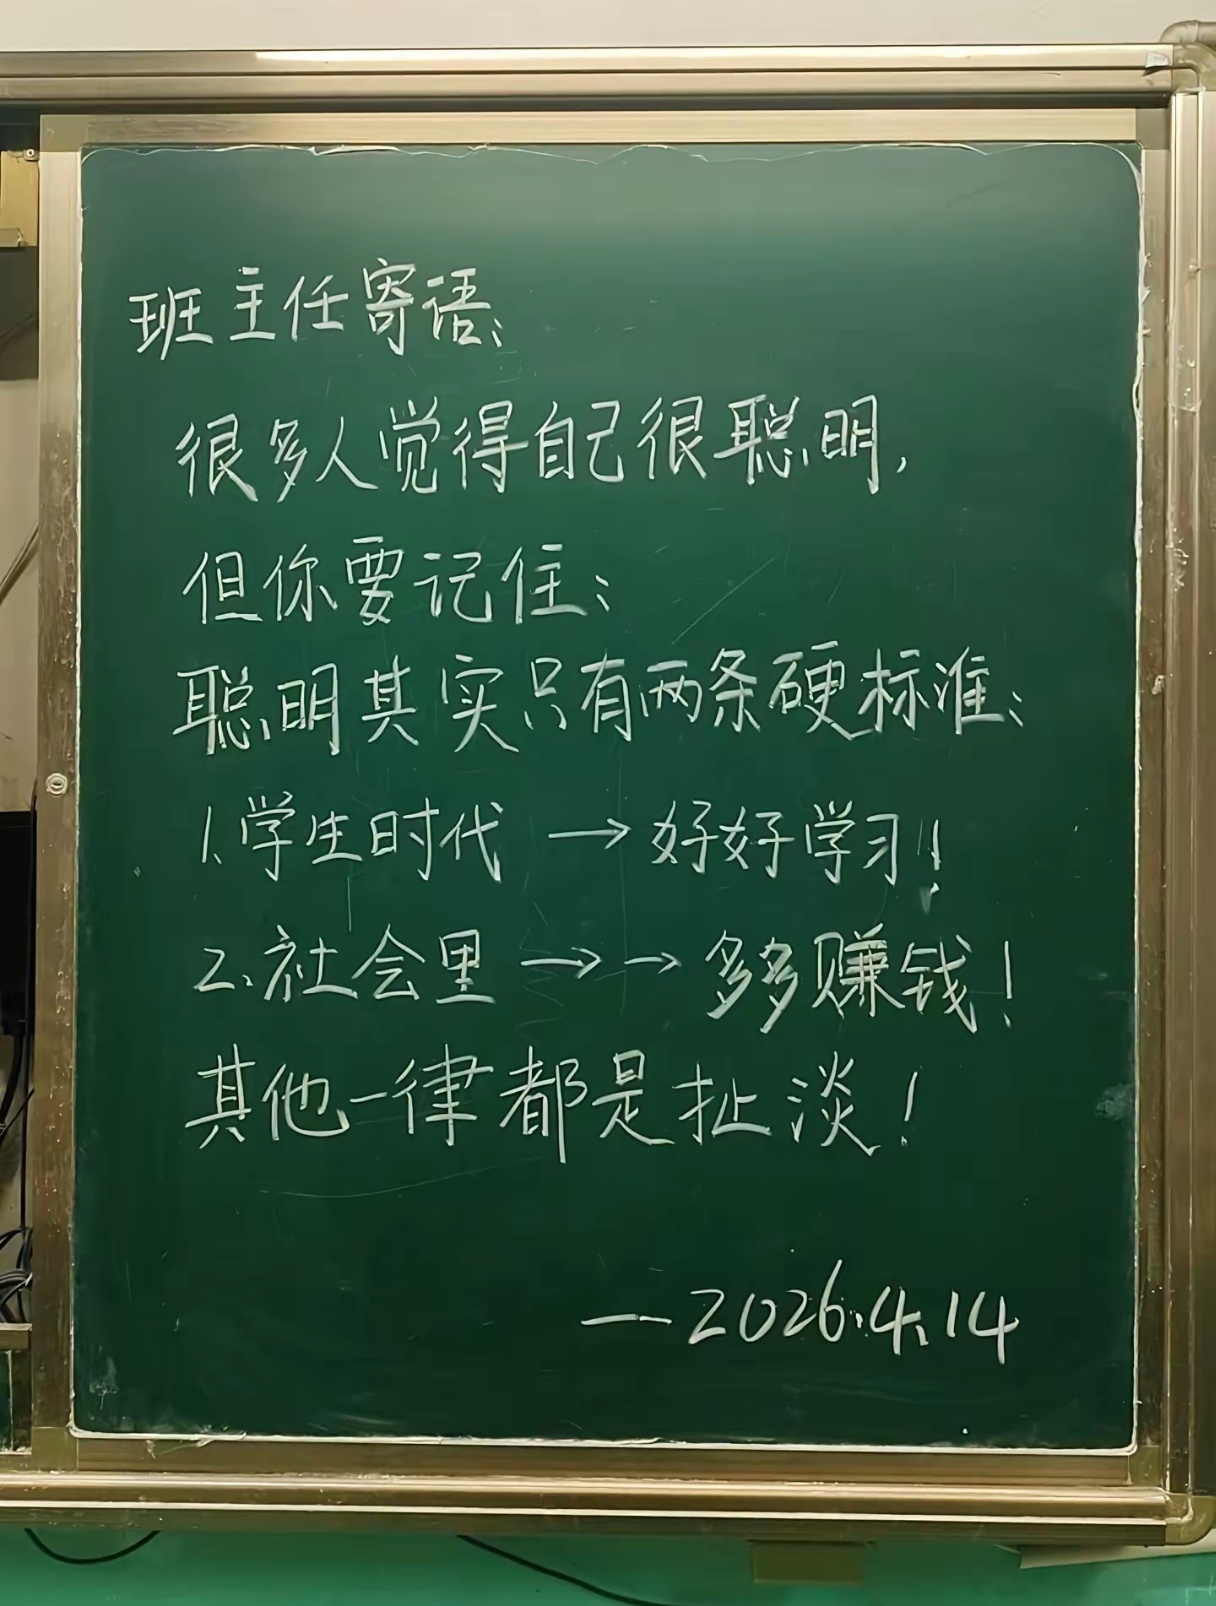 班主任寄语:
很多人觉得自己很聪明,
但你要记住:
聪明其实只有两条硬标准:
1.学生时代 → 好好学习!
2.社会里 → → 多多赚钱!
其他一律都是扯淡!
—2026.4.14